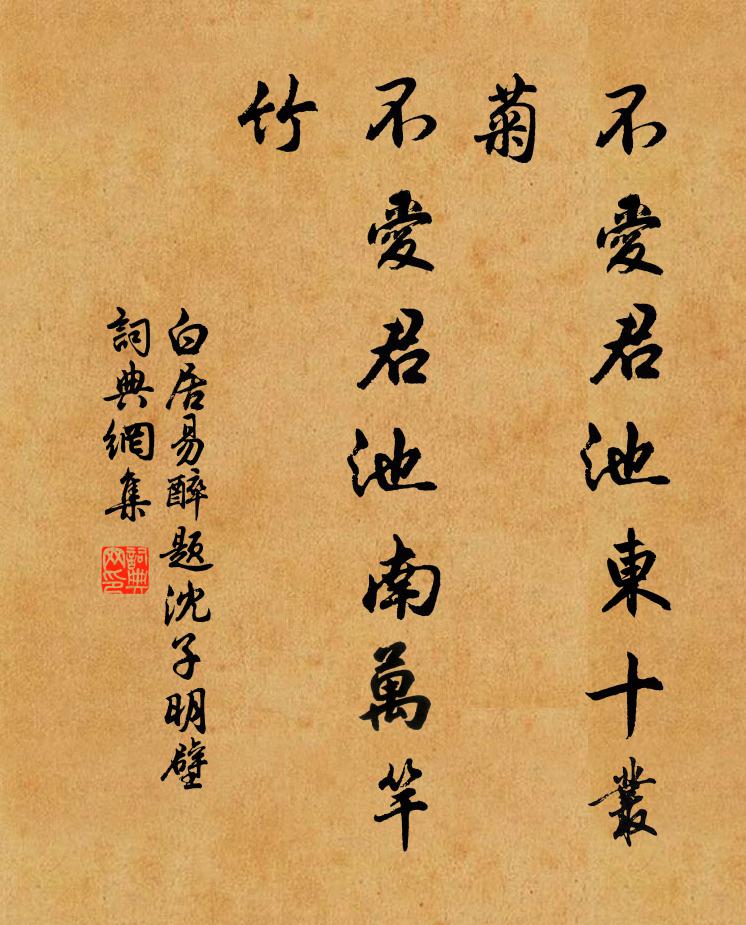 不愛君池東十叢
菊
不愛君池南萬竿
竹
白居易醉題沈子明壁
詞典網集
詞典
网印